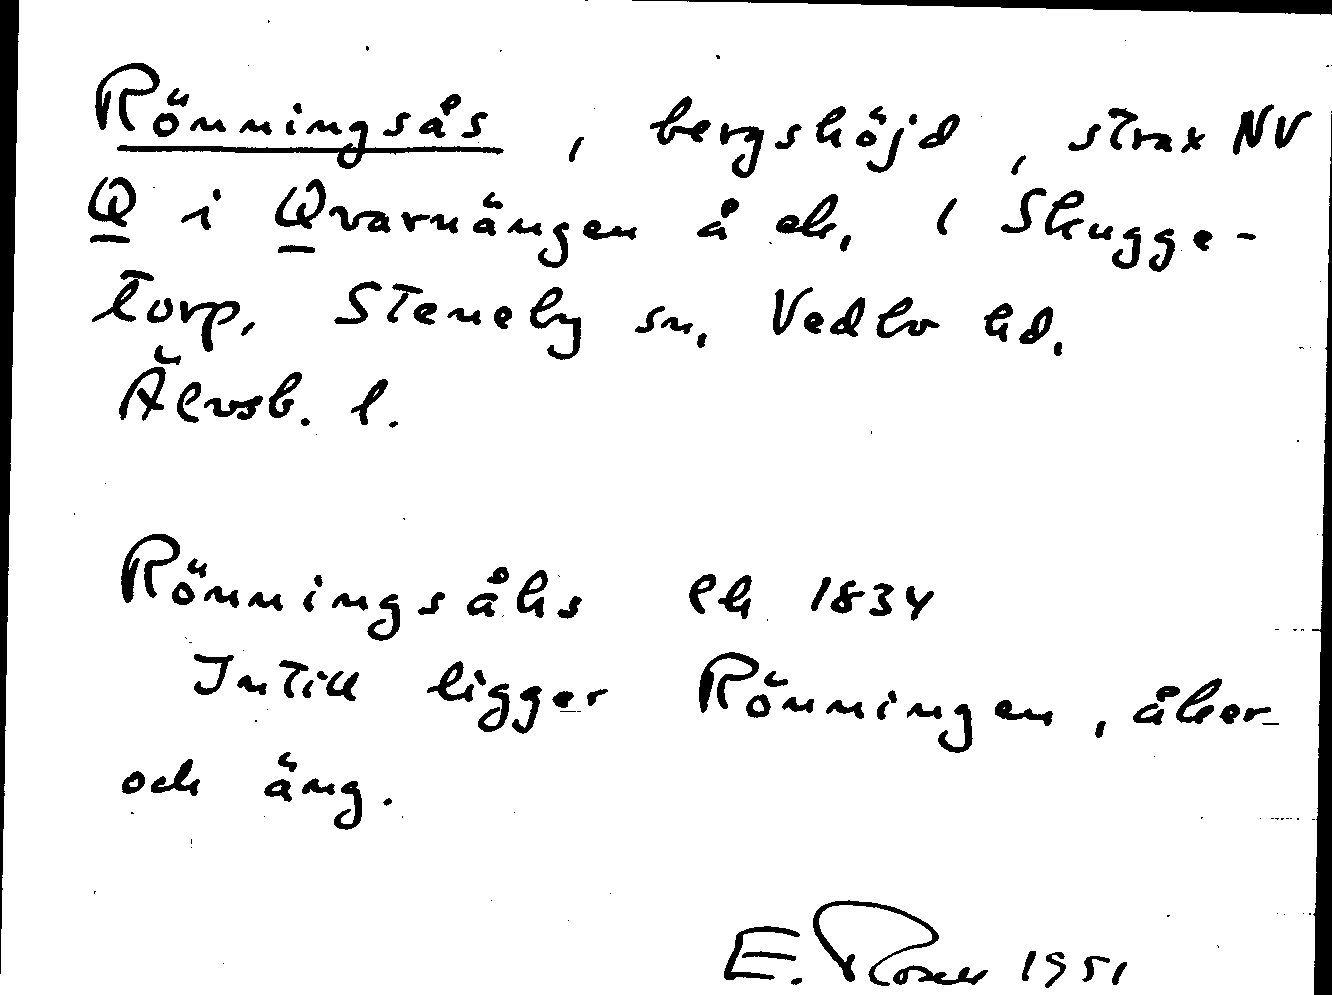 Rönningsås, bergshöjd, strax NV
Q i Qvarnängen å ek. i Skugge-
torp, Steneby sn, Vedbo hd.
Älvsb. l.
Rönningsåhs Ek 1834
Intill ligger Rönningen, åker
och äng.
E. 1951